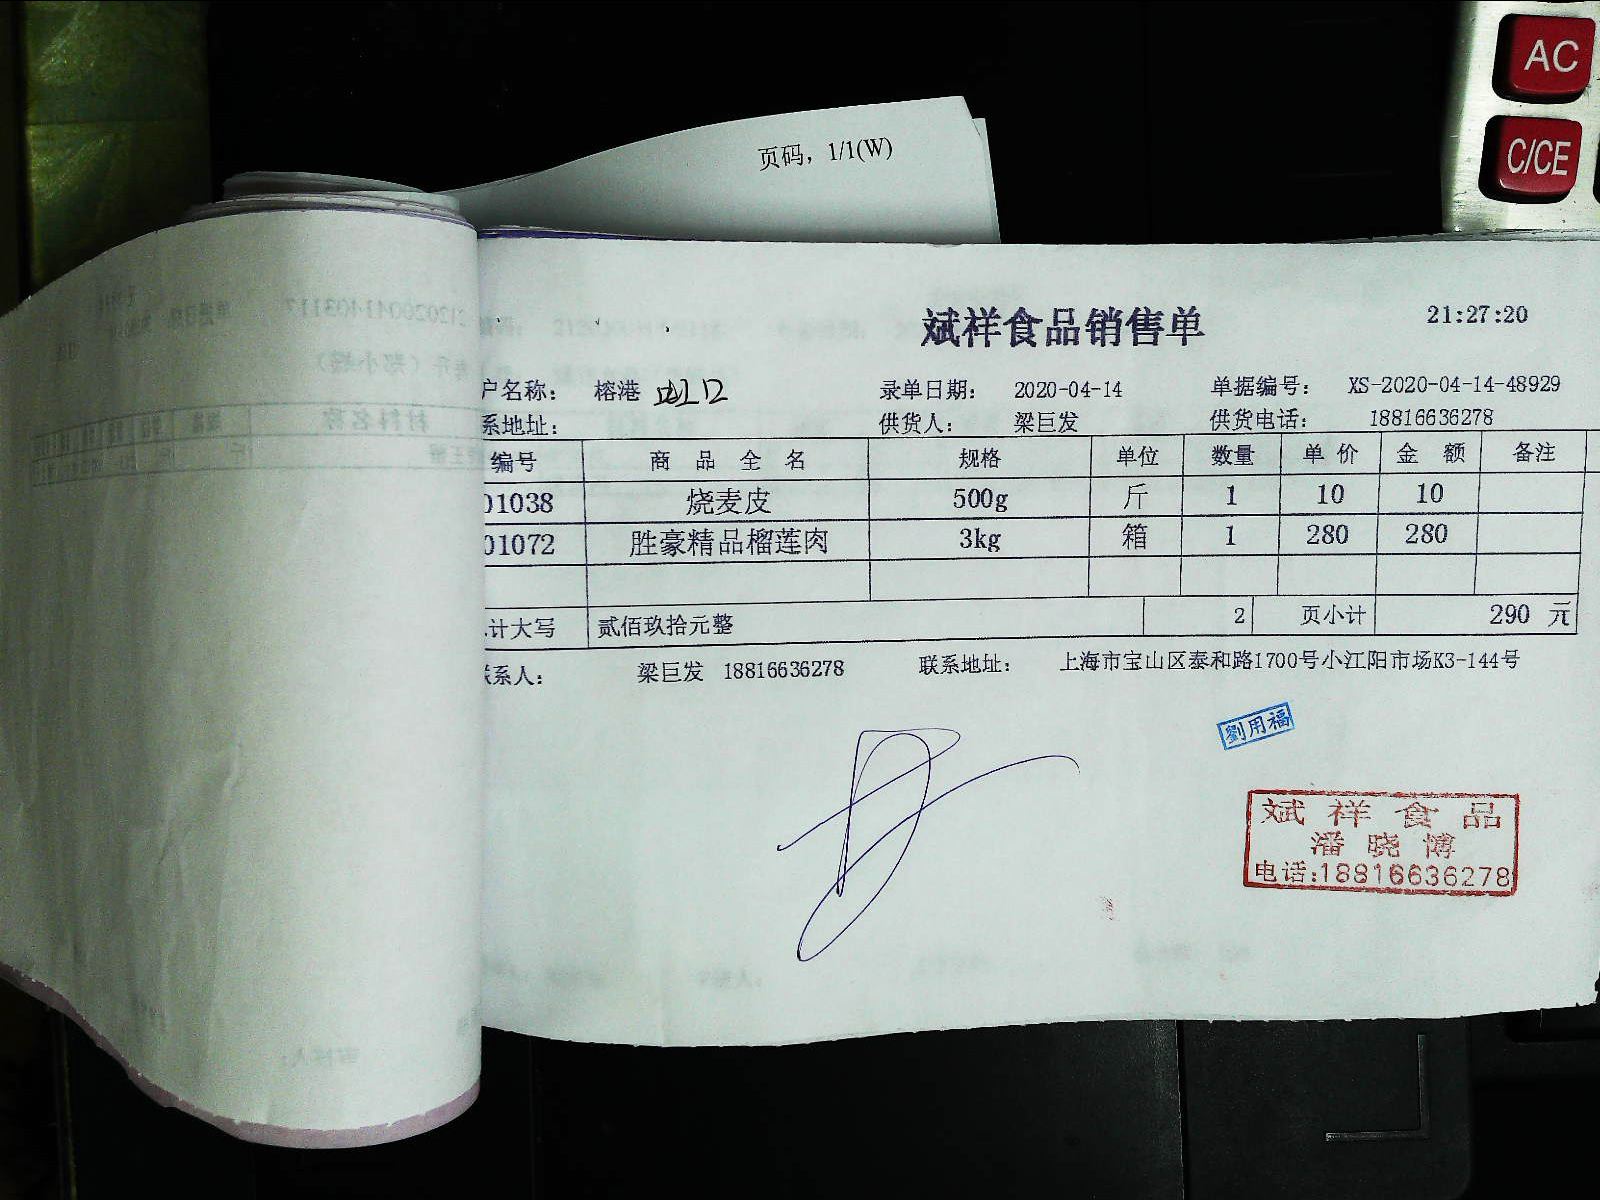 AC
C/CE
页码，1/1(W)
斌祥食品销售单 21:27:20
户名称： 榕港 录单日期： 2020-04-14 单据编号： XS-2020-04-14-48929
系地址： 供货人： 梁巨发 供货电话： 18816636278
编号 商品全名 规格 单位 数量 单价 金额 备注
01038 烧麦皮 500g 斤 1 10 10
01072 胜豪精品榴莲肉 3kg 箱 1 280 280
计大写 贰佰玖拾元整 2 页小计 290 元
联系人： 梁巨发 18816636278 联系地址： 上海市宝山区泰和路1700号小江阳市场K3-144号
劉用福
斌祥食品
潘晓博
电话:18816636278